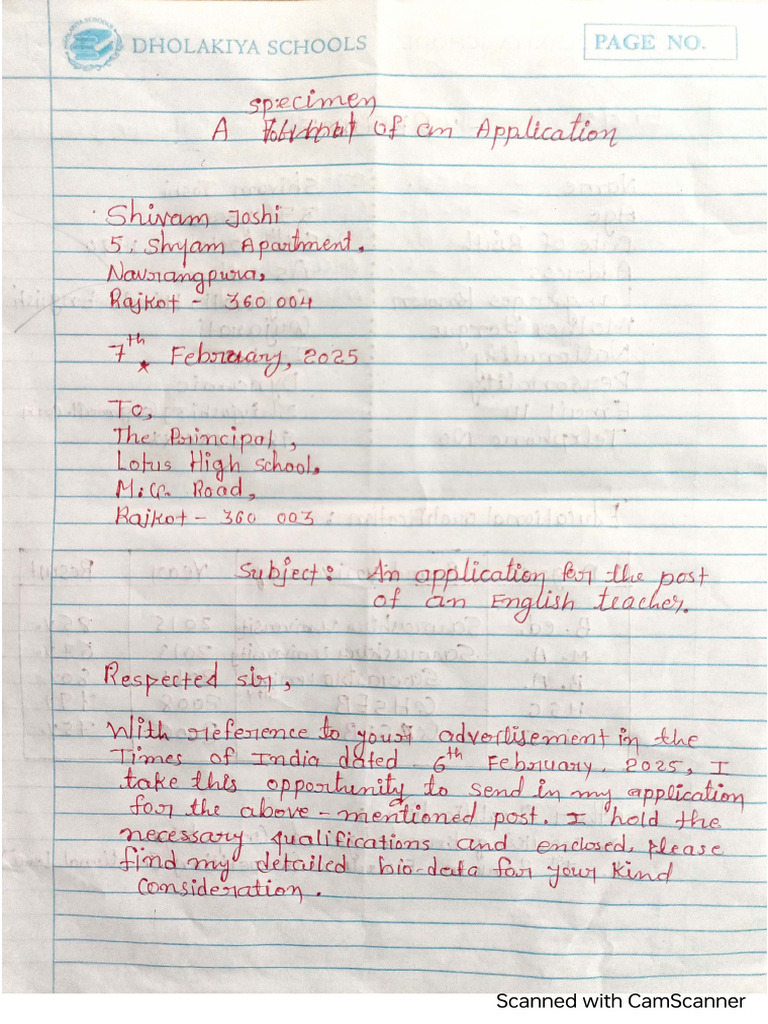 DHOLAKIYA SCHOOLS
PAGE NO.
specimen
A of an Application
Shivam Joshi
5, Shyam Apartment,
Navrangpura,
Rajkot - 360 004
7th February, 2025
To,
The Principal,
Lotus High school,
Road,
Rajkot - 360 003
Subject: An application for the post
of an English teacher.
Respected sir,
With reference to your advertisement in the
Times of India dated 6th February, 2025, I
take this opportunity to send in my application
for the above-mentioned post. I hold the
necessary qualifications and enclosed, please
find my detailed bio-data for your kind
consideration.
Scanned with CamScanner